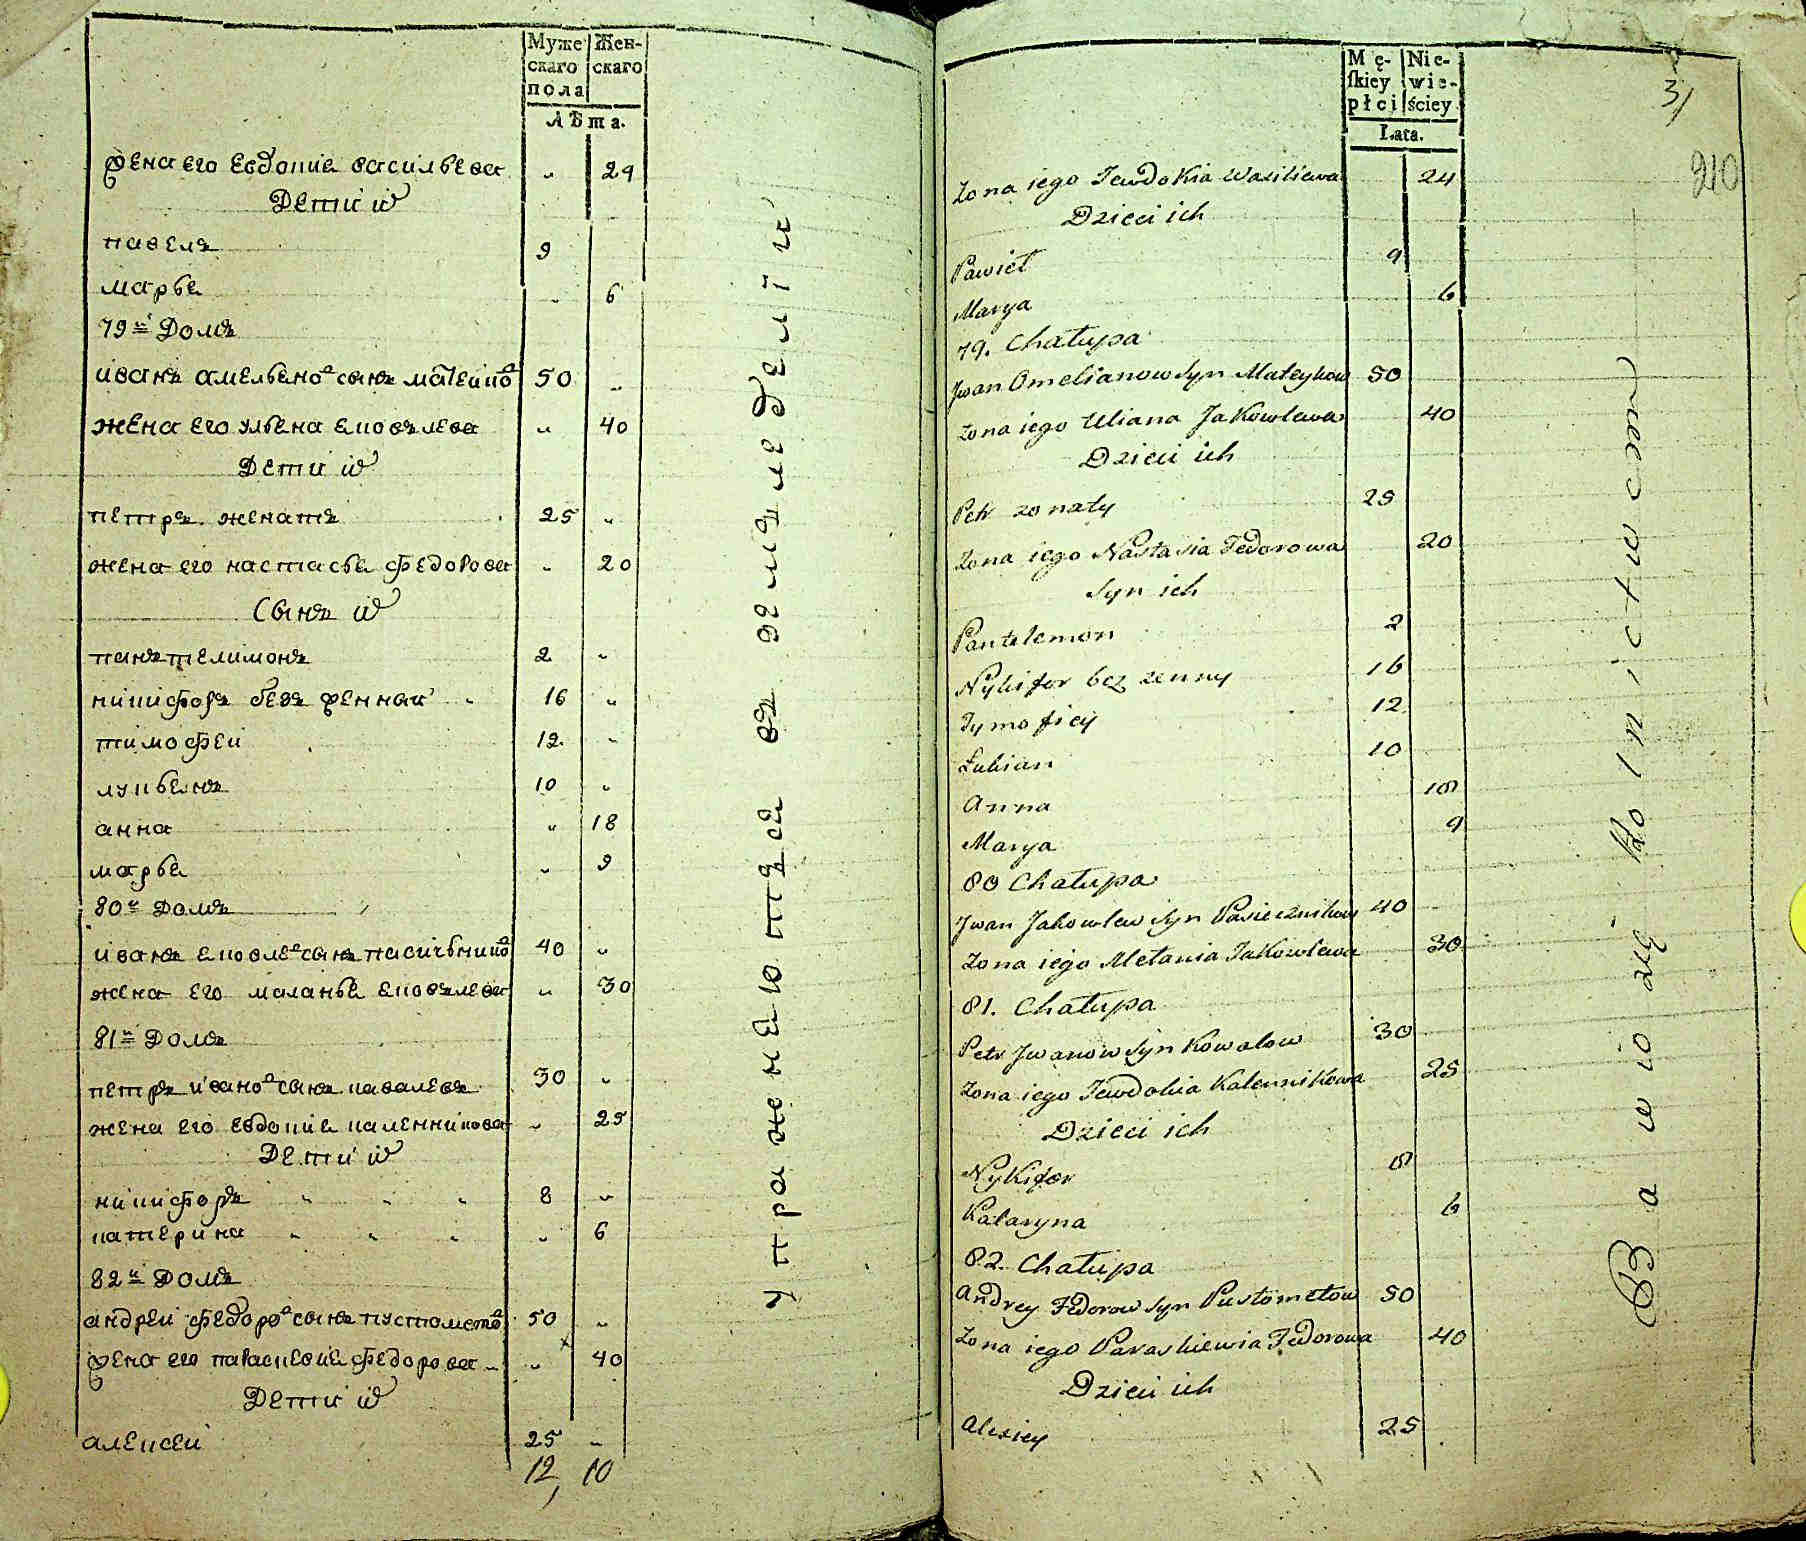 Муже- Жен-
скаго скаго
пола
Лѣта.
жена его Евдокиѧ васильева „ 24
Дети их
павелъ 9
марья „ 6
79й Домъ
иванъ амельянов сынъ матейков 50 „
жена его ульяна яковълева „ 40
Дети их
петръ женатъ 25 „
жена его настасья федорова „ 20
Сынъ их
панътелимонъ 2 „
никифоръ безъ женный 16 „
тимофей 12 „
лукьянъ 10 „
анна „ 18
марья „ 9
80й Домъ
иванъ яковлев сынъ пасичников 40 „
жена его маланья яковълева „ 30
81й Домъ
петръ иванов сынъ ковалевъ 30 „
жена его евдокия каленникова „ 25
Дети их
никифоръ 8 „
катерина „ 6
82й Домъ
андрей федоров сынъ пустометов 50 „
жена его парасковия федорова „ 40
Дети их
алексей 25 „
12, 10
упражняютъся въ хлѣ
Mę- Nie-
ſkiey wie-
płci ściey
Lata.
31
210
Zona iego Jewdokia Wasiliewa 24
Dzieci ich
Pawieł 9
Marya 6
79. Chałupa
Jwan Omelianow Syn Mateykow 50
Zona iego Uliana Jakowlewa 40
Dzieci ich
Petr zonaty 25
Zona iego Nastasia Fedorowa 20
Syn ich
Pantelemon 2
Nykifor bez zenny 16
Tymofiey 12
Łukian 10
Anna 18
Marya 9
80 Chałupa
Jwan Jakowlew Syn Pasiecznikow 40
Zona iego Mełania Jakowlewa 30
81. Chałupa
Petr Jwanow Syn Kowalow 30
Zona iego Jewdokia Kalennikowa 25
Dzieci ich
Nykifor 8
Kataryna 6
82. Chałupa
Andrey Fedorow Syn Pustometow 50
Zona iego Paraskiewia Fedorowa 40
Dzieci ich
Alexiey 25